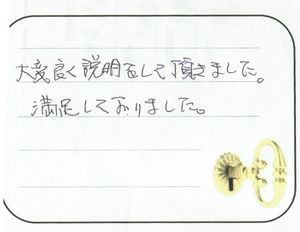 大変良く説明をして頂きました。
満足しております���した。